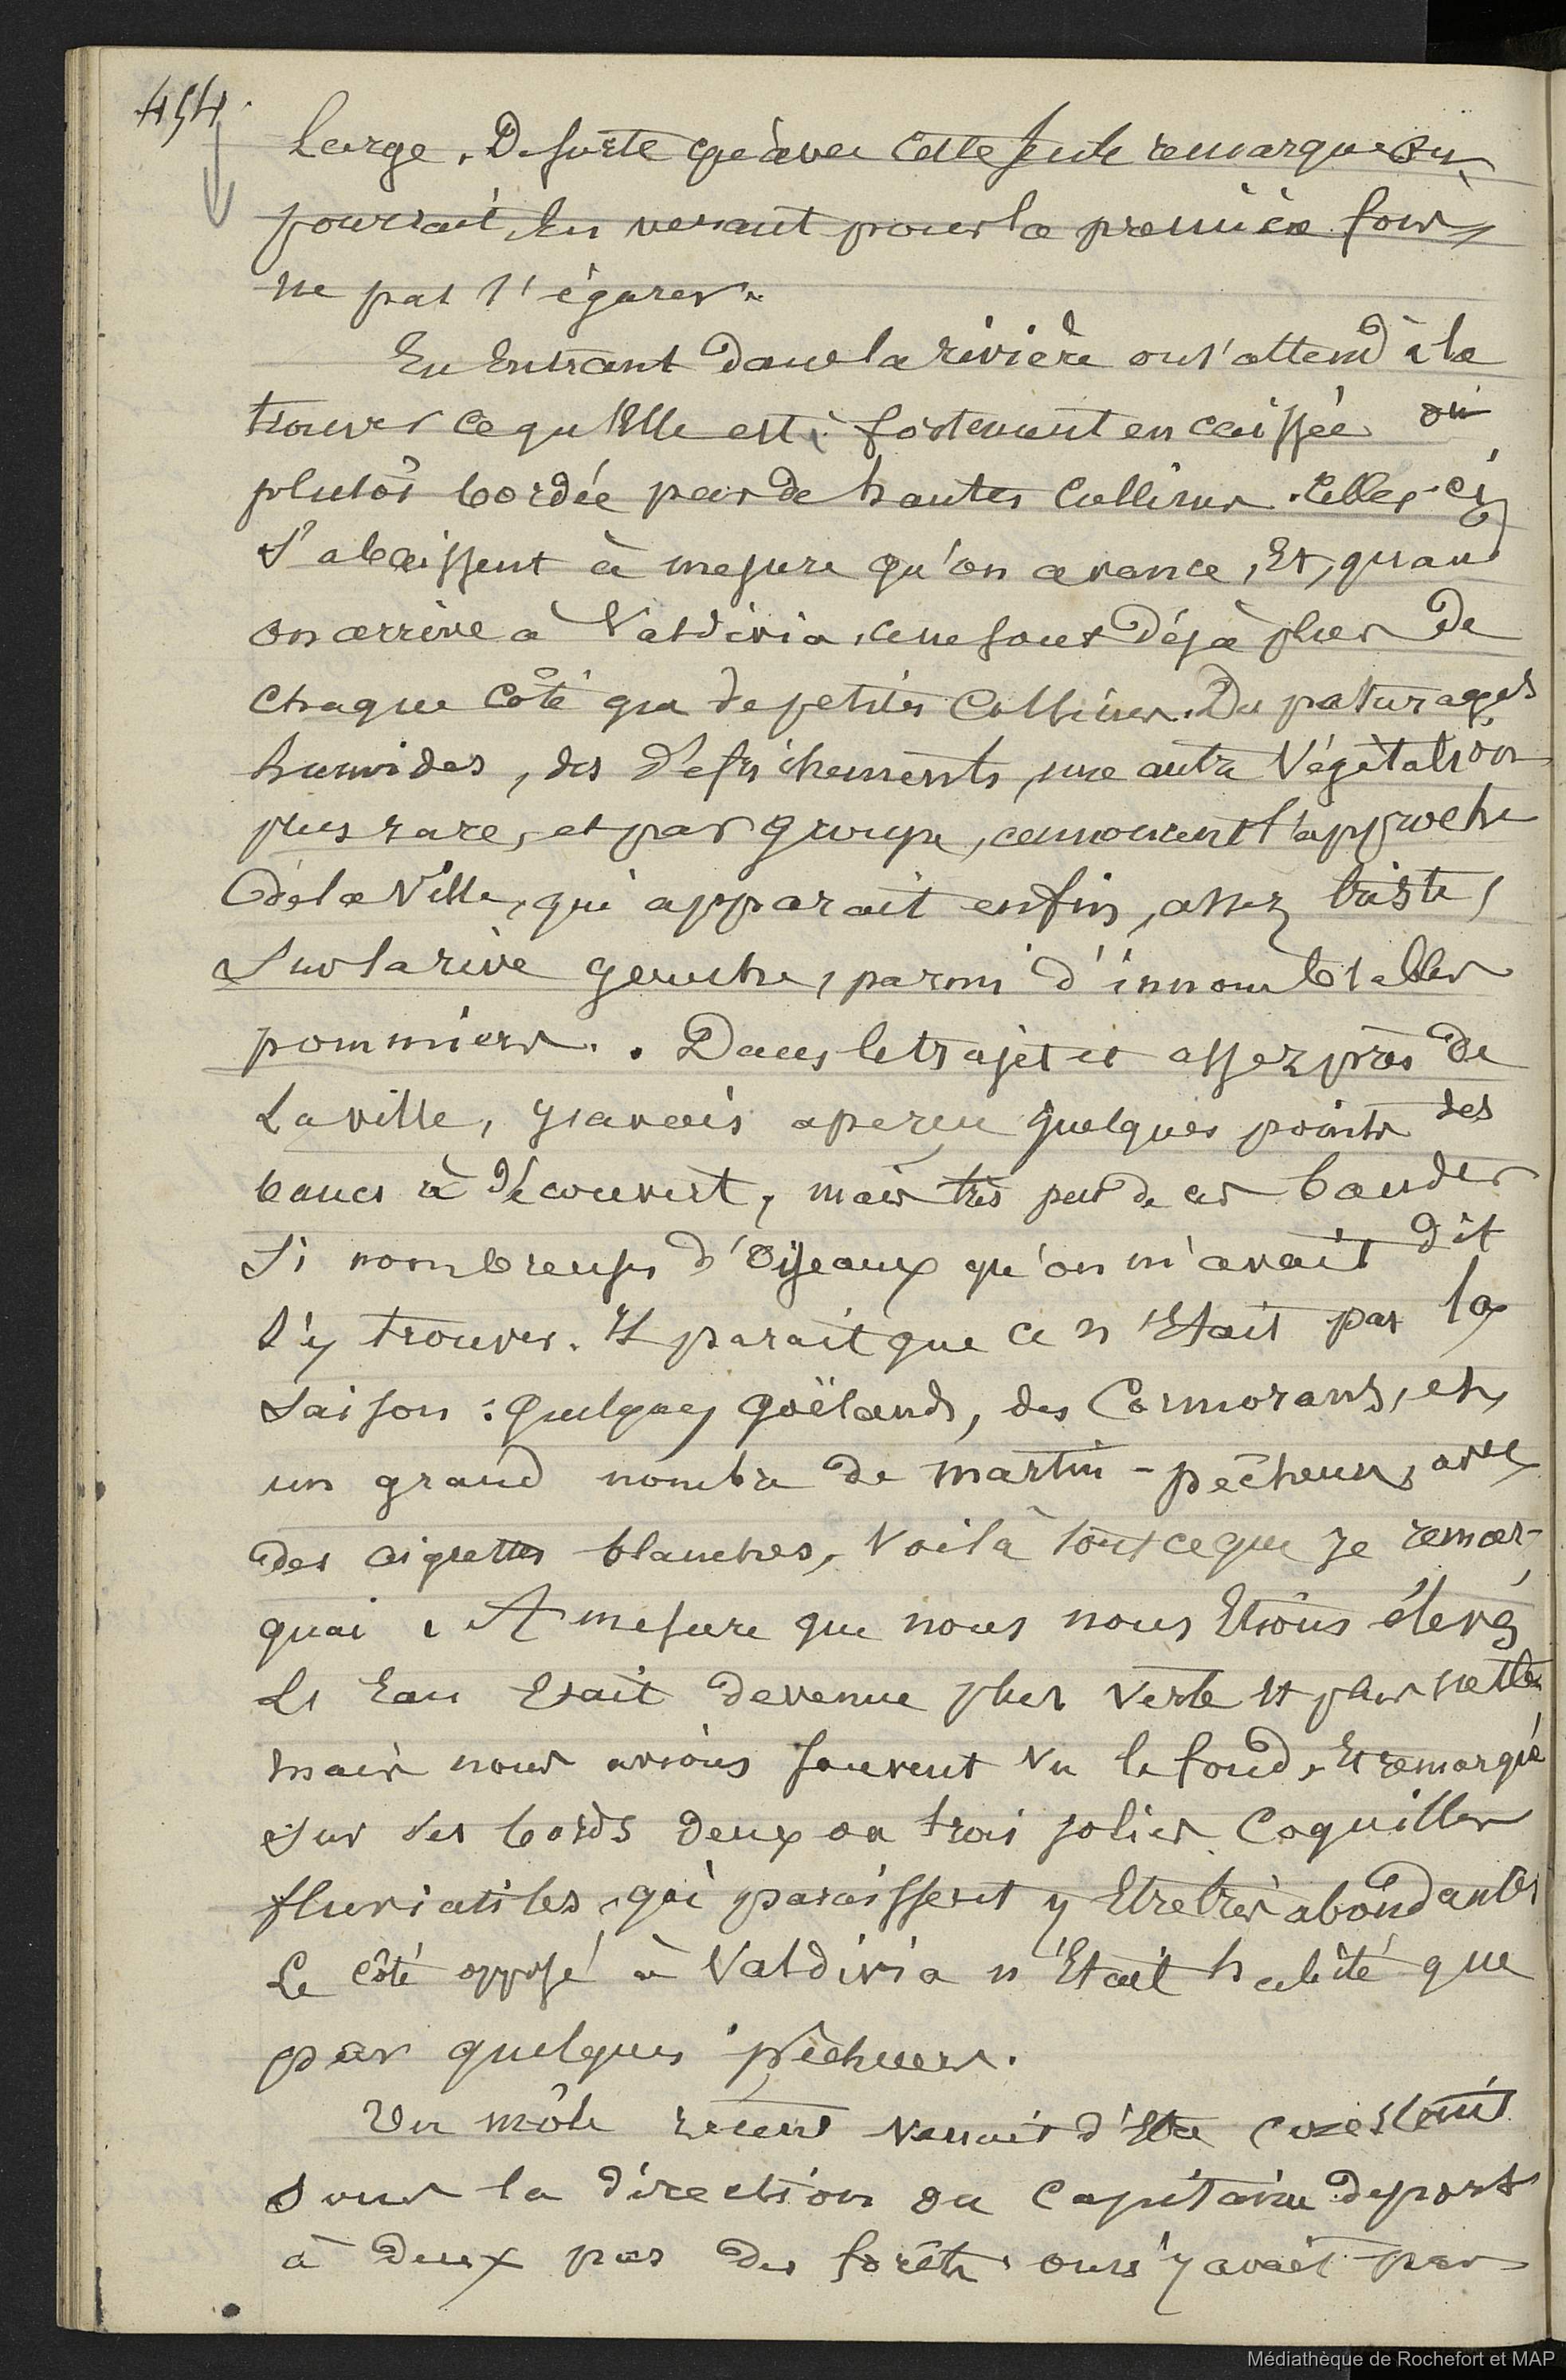 454
Large. De sorte qu'avec cette seule remarque on
pourrait, en venant pour la première fois,
ne pas s'égarer.
En Entrant dans la rivière on s'attend à la
trouver ce qu'Elle est : fortement encaissée ou
plutôt bordée par de hautes Collines. Celles-ci
s'abaissent à mesure qu'on avance, Et, quand
on arrive à Valdivia, ce ne sont déjà plus de
chaque côté que de petites Collines. Des paturages
humides, des défrichements, une autre Végétation
plus rare, et par groupe, annoncent l'approche
de la Ville, qui apparait enfin, assez triste,
sur la rive gauche, parmi d'innombrables
pommiers. Dans le trajet et assez près de
La ville, j'avais aperçu quelques points des
bancs à découvert, mais très peu de ces bandes
si nombreuses d'Oiseaux qu'on m'avait dit
s'y trouver. Il parait que ce n'Etait pas la
saison : quelques goëlands, des Cormorans, et
un grand nombre de martin-pêcheurs, avec
des aigrettes blanches, Voilà tout ce que je remar-
quai. A mesure que nous nous Etions élevés
L'Eau Etait devenue plus verte Et plus nette
mais nous avions souvent vu le fond, Et remarqué
sur les bords deux ou trois jolies Coquilles
fluviatiles, qui paraissent y Etre très abondantes
Le côté opposé à Valdivia n'Etait habité que
par quelques pêcheurs.
Un môle récent venait d'Etre construit
sous la direction du Capitaine de port
à deux pas des forêts on n'y avait pas
Médiathèque de Rochefort et MAP